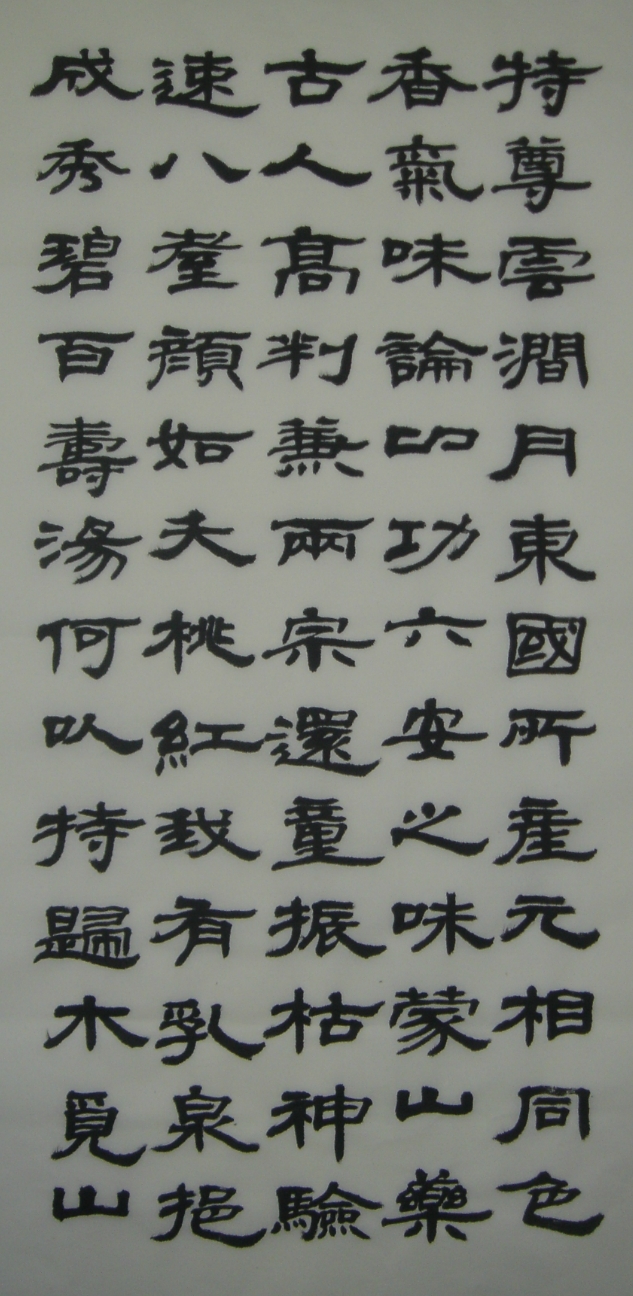 特尊雲澗月東國所産元相同色
香氣味論功六安之味蒙山藥
古人高判兼兩宗還童振枯神驗
速八耋顔如夭桃紅我有乳泉挹
成秀碧百壽湯何以持歸木覓山